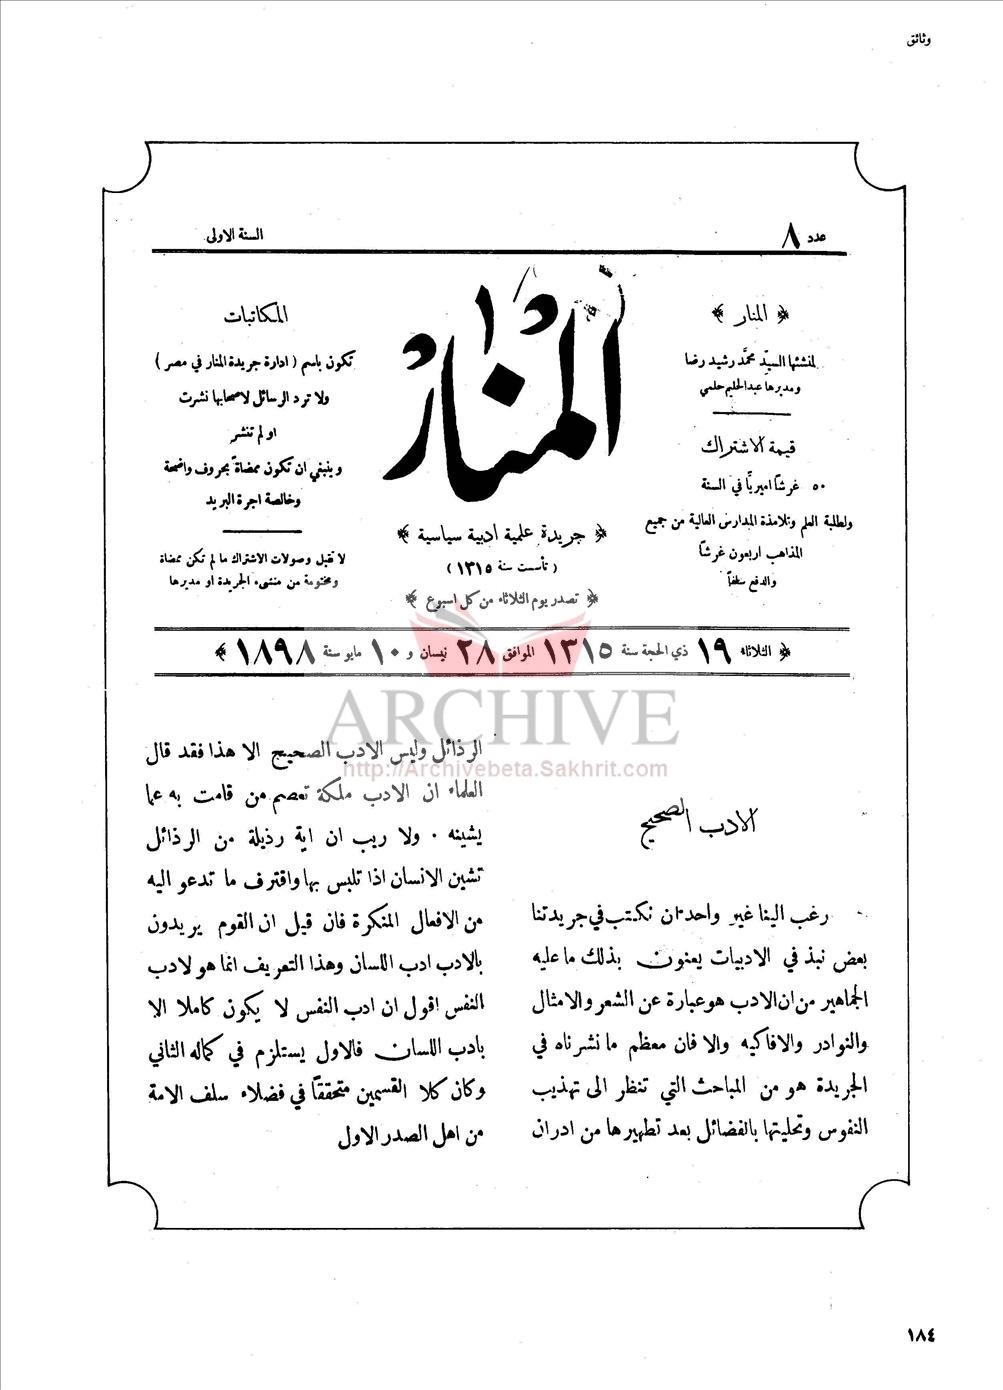 وثائق
عدد ٨
السنة الاولى
﴿ المنار ﴾
لمنشئها السيّد محمّد رشيد رضا
ومديرها عبدالحليم حلمي
قيمة الاشتراك
٥٠ غرشاً اميريّاً في السنة
ولطلبة العلم وتلامذة المدارس العالية من جميع
المذاهب اربعون غرشاً
والدفع سلفاً
المنار
﴿ جريدة علمية ادبية سياسية ﴾
( تأسست سنة ١٣١٥ )
﴿ تصدر يوم الثلاثاء من كل اسبوع ﴾
المكاتبات
تكون باسم ( ادارة جريدة المنار في مصر )
ولا ترد الرسائل لاصحابها نشرت
او لم تنشر
وينبغي ان تكون ممضاة بحروف واضحة
وخالصة اجرة البريد
لا تقبل وصولات الاشتراك ما لم تكن ممضاة
ومختومة من منشىء الجريدة او مديرها
﴿ الثلاثاء ١٩ ذي الحجة سنة ١٣١٥ الموافق ٢٨ نيسان و ١٠ مايو سنة ١٨٩٨ ﴾
ARCHIVE
http://Archivebeta.Sakhrit.com
الادب الصحيح
رغب الينا غير واحد ان نكتب في جريدتنا
بعض نبذ في الادبيات يعنون بذلك ما عليه
الجماهير من ان الادب هو عبارة عن الشعر والامثال
والنوادر والافاكيه والا فان معظم ما نشرناه في
الجريدة هو من المباحث التي تنظر الى تهذيب
النفوس وتحليتها بالفضائل بعد تطهيرها من ادران
الرذائل وليس الادب الصحيح الا هذا فقد قال
العلماء ان الادب ملكة تعصم من قامت به عما
يشينه ٠ ولا ريب ان اية رذيلة من الرذائل
تشين الانسان اذا تلبس بها واقترف ما تدعو اليه
من الافعال المنكرة فان قيل ان القوم يريدون
بالادب ادب اللسان وهذا التعريف انما هو لادب
النفس اقول ان ادب النفس لا يكون كاملا الا
بادب اللسان فالاول يستلزم في كماله الثاني
وكان كلا القسمين متحققاً في فضلاء سلف الامة
من اهل الصدر الاول
١٨٤